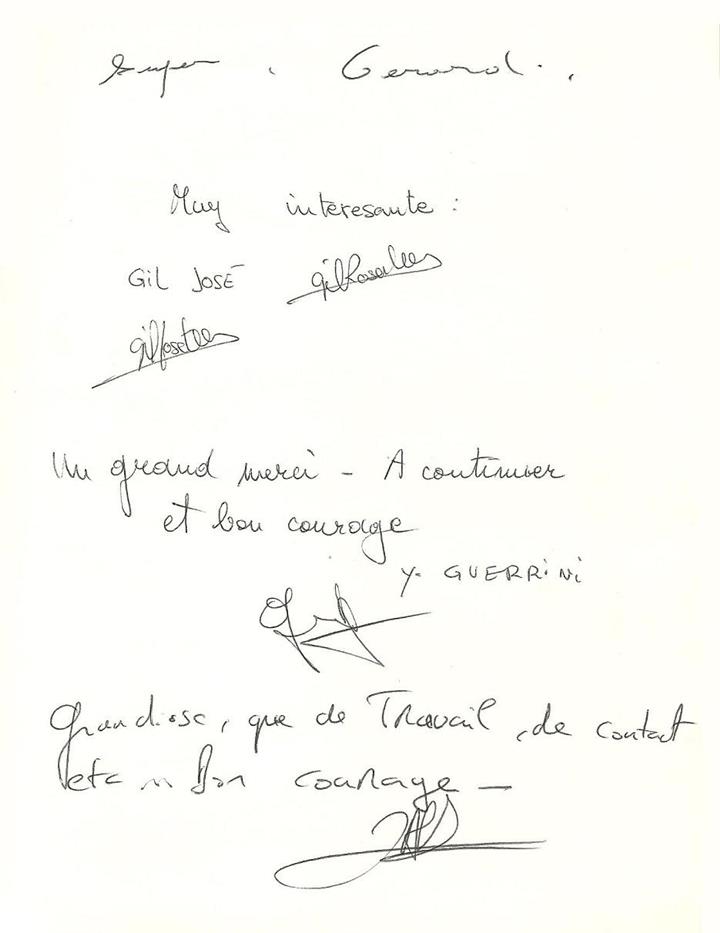 Super . Gerard . .
Muy interesante :
GIL JOSÉ
Un grand merci - A continuer
et bon courage
Y. GUERRINI
Grandiose, que de Travail, de contact
etc " Bon courage -